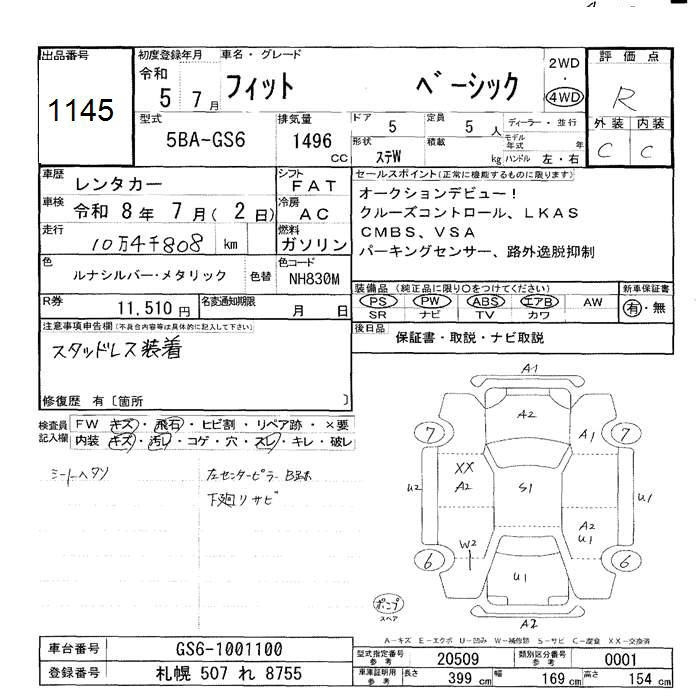 出品番号
1145
初度登録年月
令和
5 7月
車名・グレード
フィット ベーシック
2WD
・
4WD
評価点
R
外装 内装
C C
型式
5BA-GS6
排気量
1496
CC
ドア
5
定員
5
人
形状
ステW
積載
kg
ディーラー・並行
モデル
年式
年
ハンドル 左・右
車歴
レンタカー
車検
令和 8年 7月( 2日)
走行
10万4千808 km
シフト
FAT
冷房
AC
燃料
ガソリン
色
ルナシルバー・メタリック
色替
色コード
NH830M
R券
11,510円
名変通知期限
月 日
セールスポイント(正常に機能するものに限ります)
オークションデビュー!
クルーズコントロール、LKAS
CMBS、VSA
パーキングセンサー、路外逸脱抑制
装備品(純正品に限り○をつけてください)
PS PW ABS エアB AW
SR ナビ TV カワ
新車保証書
有・無
後日品
保証書・取説・ナビ取説
注意事項申告欄(不具合内容等は具体的に記入して下さい)
スタッドレス装着
修復歴 有〔箇所 〕
検査員
記入欄
FW キズ・飛石・ヒビ割・リペア跡・×要
内装 キズ・汚レ・コゲ・穴・スレ・キレ・破レ
シートヘタリ
左センターピラー B跡
下廻リサビ
A1
A2
7
7
A1
XX
A2
S1
U2
U1
A2
U1
W2
6
6
U1
ポンプ
スペア
A2
A-キズ E-エクボ U-凹み W-補修跡 S-サビ C-腐食 XX-交換済
車台番号
GS6-1001100
登録番号
札幌 507 れ 8755
型式指定番号
参考
20509
類別区分番号
参考
0001
車庫証明用
参考
長さ
399 cm
幅
169 cm
高さ
154 cm